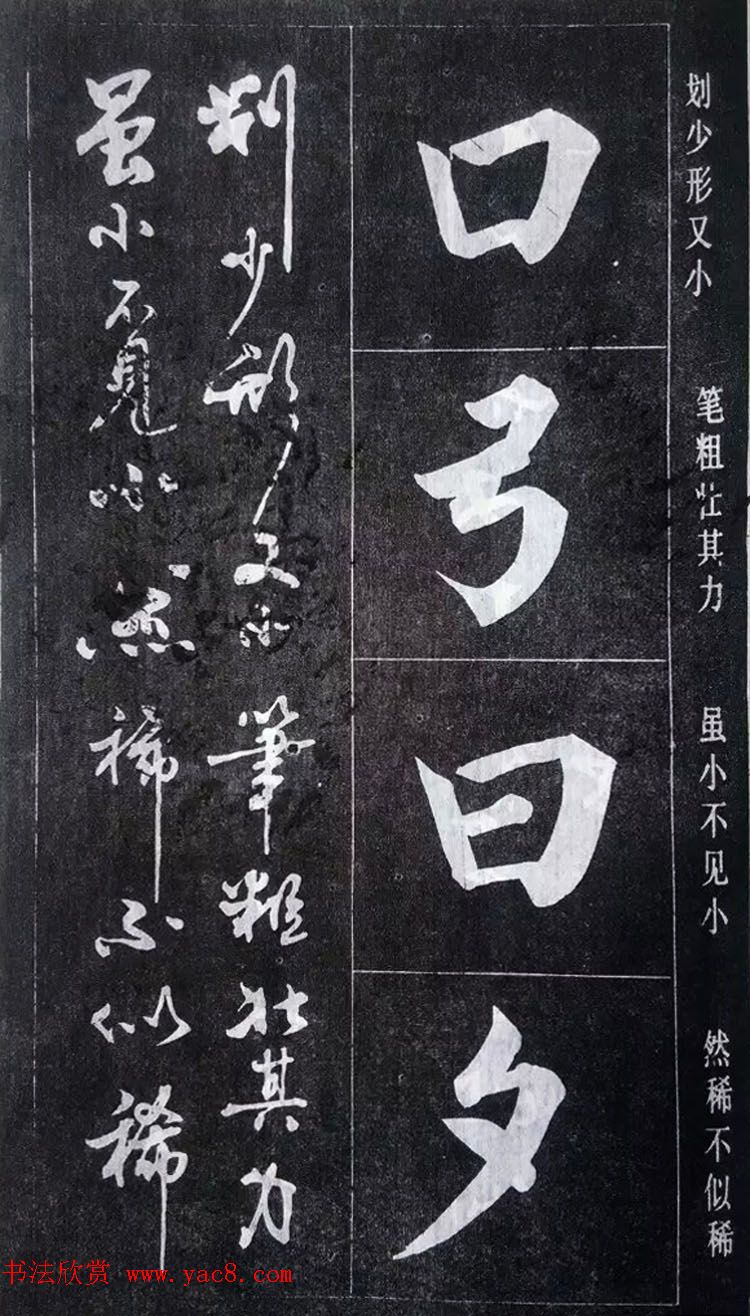 划少形又小 笔粗壮其力 虽小不见小 然稀不似稀
口弓曰夕
划少形又小筆粗壮其力
虽小不見小然稀不似稀
书法欣赏 www.yac8.com